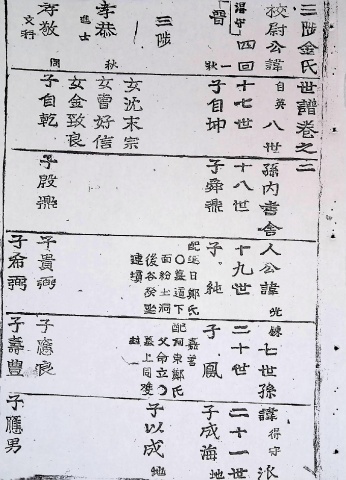 三陟金氏世譜卷之二
校尉公諱 自英 八世孫內書舍人公諱 光鍊 七世孫諱 得守 派
四回 十七世 十八世 十九世 二十世 二十一世
得守
曾 一秋
子自坤
子舜
子 純
子 鳳
子成海 地
配迎日鄭氏
○墓道下
面紛土洞
後谷癸坐
連墳
嘉善
配河東鄭氏
父命立
墓上同雙
封
三陟
女沈末宗
子以成 地
孝恭 進士
女曺好信
女金致良
孝敬 文科
子自乾
子殷
子貴弼
子應良
子希弼
子壽豐
子應男